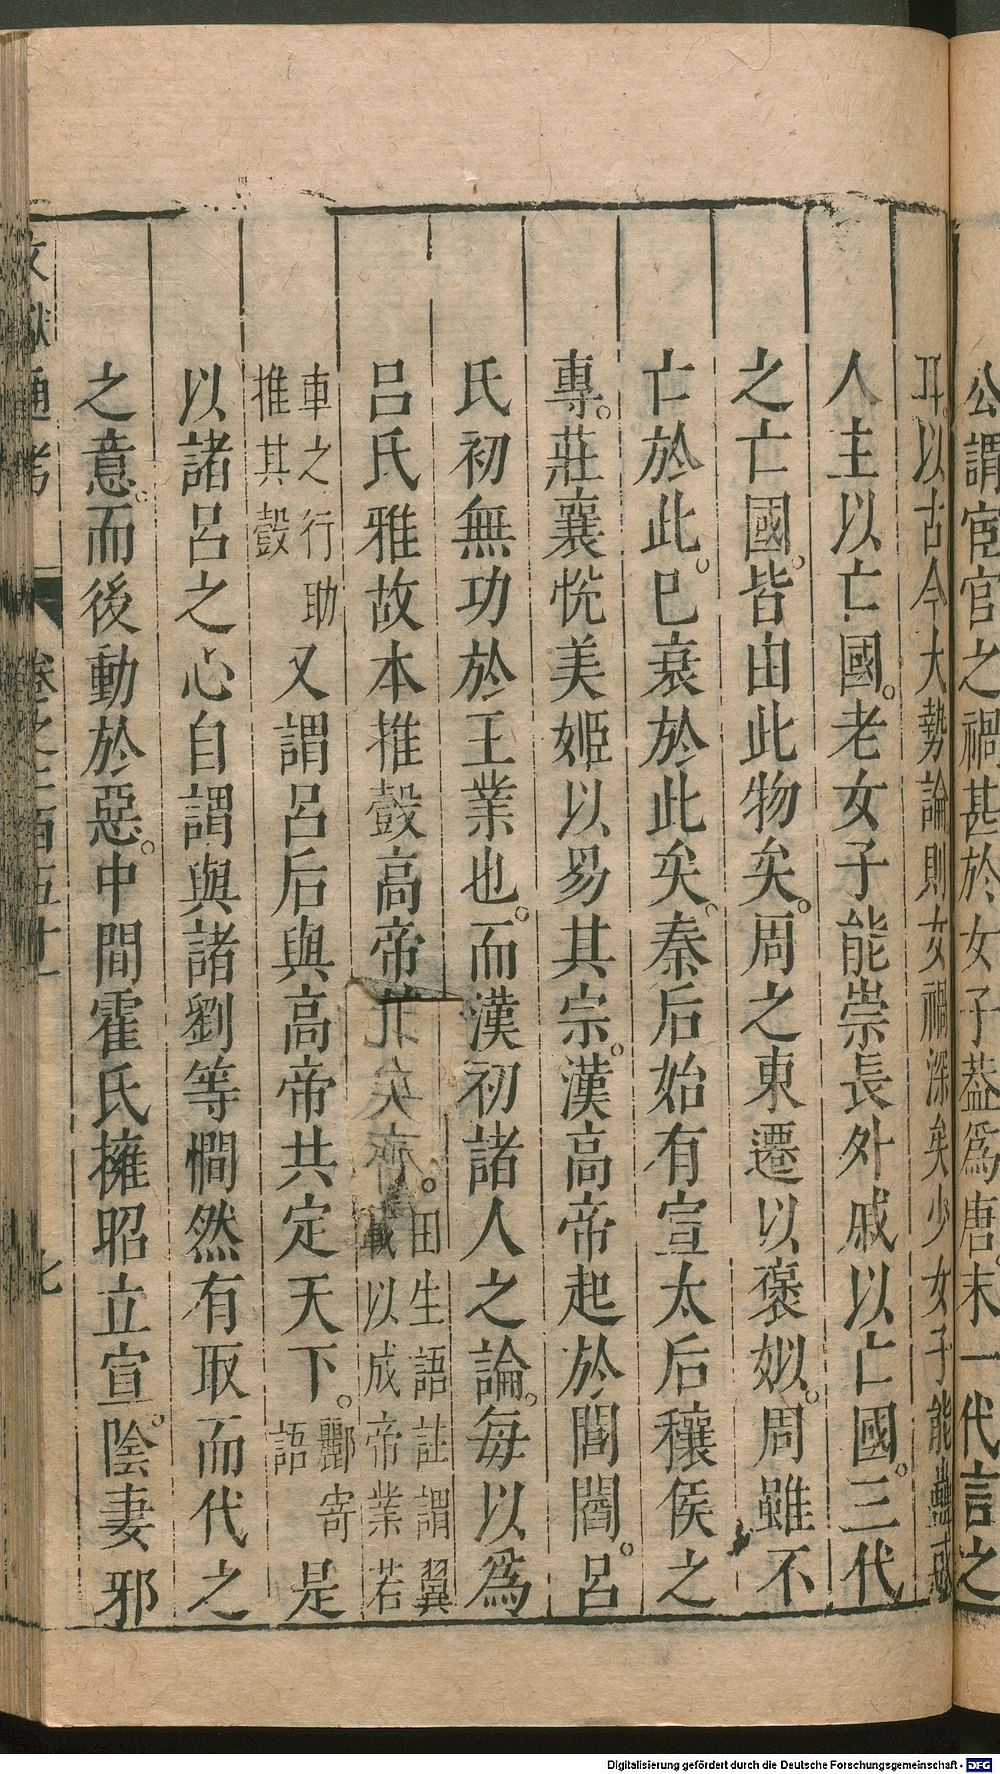 公謂宦官之禍甚於女子葢爲唐末一代言之
耳以古今大勢論則女禍深矣少女子能蠱惑
人主以亡國老女子能崇長外戚以亡國三代
之亡國皆由此物矣周之東遷以褒姒周雖不
亡於此巳衰於此矣秦后始有宣太后穰侯之
專莊襄悅美姬以易其宗漢高帝起於閭閻呂
氏初無功於王業也而漢初諸人之論每以爲
呂氏雅故本推轂高帝
田生語註謂翼
載以成帝業若
車之行助
推其轂
又謂呂后與高帝共定天下
酈寄
語
是
以諸呂之心自謂與諸劉等憪然有取而代之
之意而後動於惡中間霍氏擁昭立宣陰妻邪
文獻通考
卷之二百五十一
七
Digitalisierung gefördert durch die Deutsche Forschungsgemeinschaft - DFG